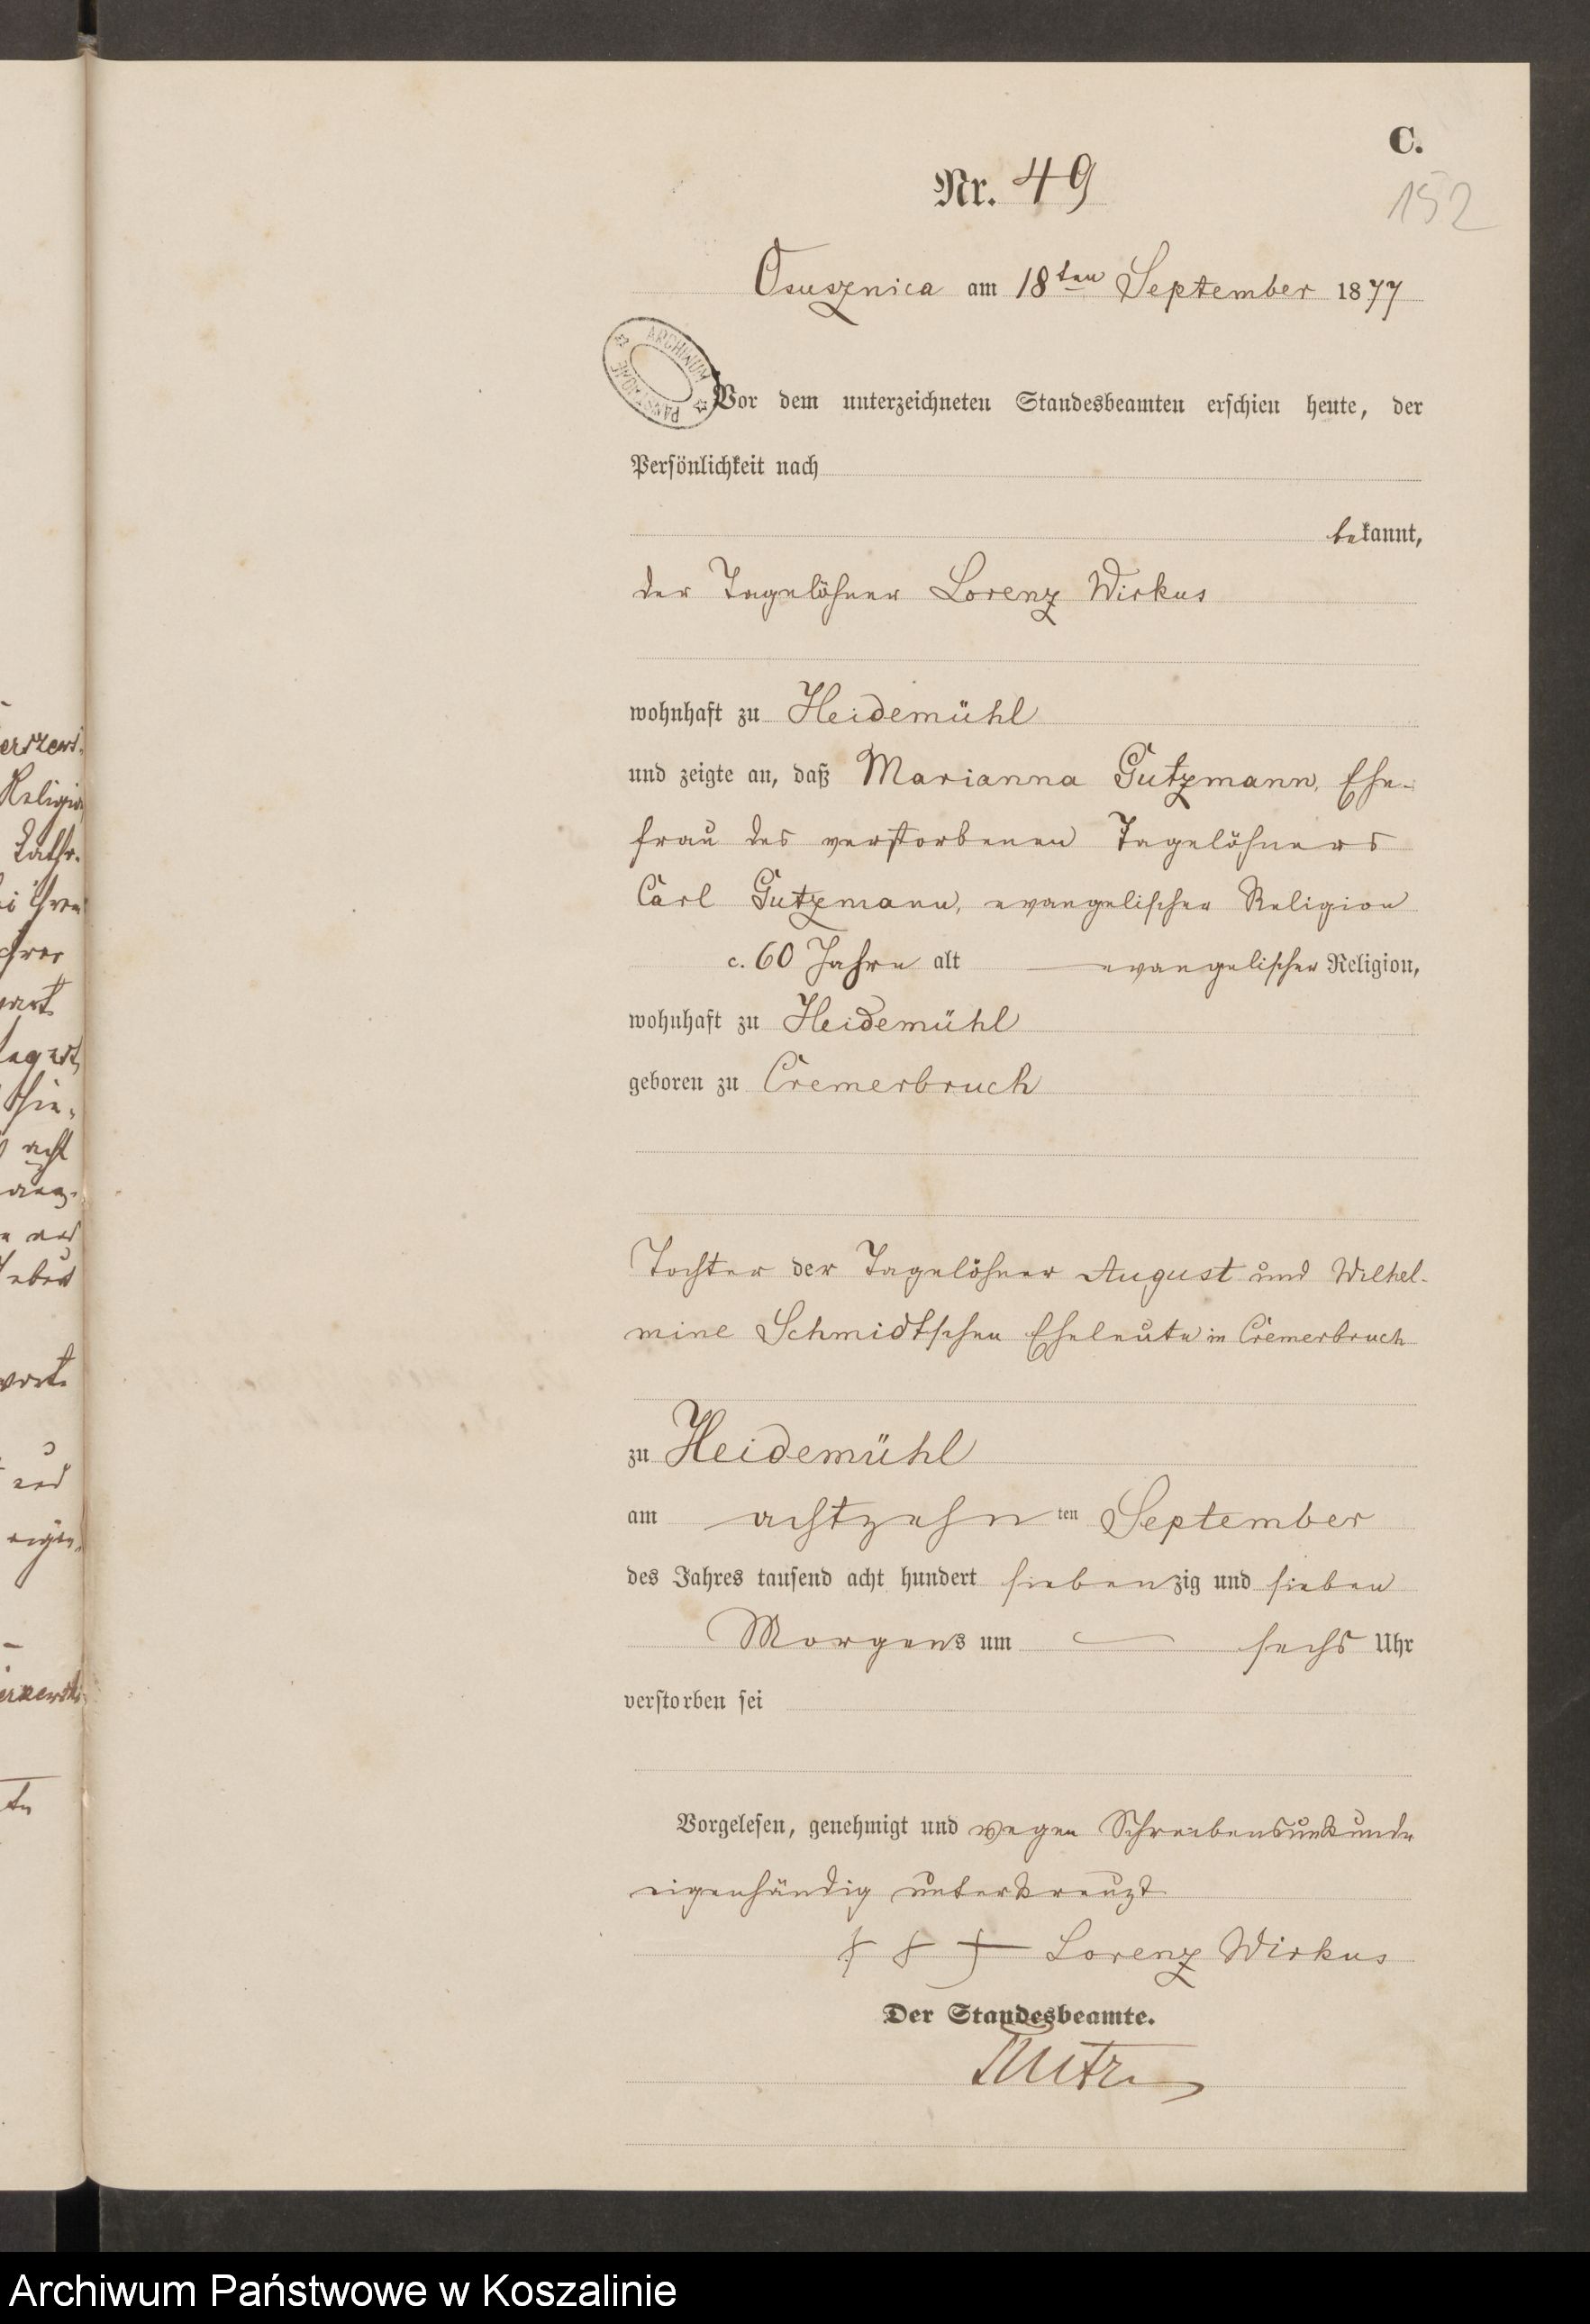 C.
Nr. 49
152
Osusznica am 18ten September 1877
ARCHIWUM PAŃSTWOWE
Vor dem unterzeichneten Standesbeamten erschien heute, der
Persönlichkeit nach
bekannt,
der Tagelöhner Lorenz Wirkus
wohnhaft zu Heidemühl
und zeigte an, daß Marianna Gutzmann, Ehe-
frau des verstorbenen Tagelöhners
Carl Gutzmann, evangelischer Religion
c. 60 Jahre alt evangelischer Religion,
wohnhaft zu Heidemühl
geboren zu Cremerbruch
Tochter der Tagelöhner August und Wilhel-
mine Schmidtschen Eheleute in Cremerbruch
zu Heidemühl
am achtzehn ten September
des Jahres tausend acht hundert siebenzig und sieben
Morgens um sechs Uhr
verstorben sei
Vorgelesen, genehmigt und wegen Schreibensunkunde
eigenhändig unterkreuzt
+ + + Lorenz Wirkus
Der Standesbeamte.
Archiwum Państwowe w Koszalinie